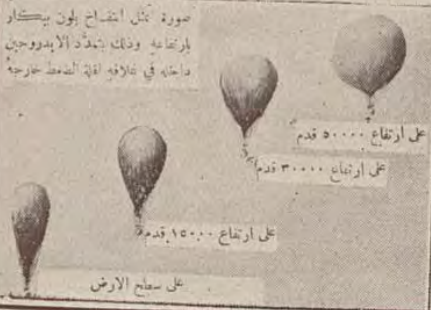 صورة تمثل انتفاخ بلون بيكار
بارتفاعه وذلك بتمدّد الايدروجين
داخله في غلافه لقلة الضغط خارجه
على ارتفاع ٥٠٠٠٠ قدم
على ارتفاع ٣٠٠٠٠ قدم
على ارتفاع ١٥٠٠٠ قدم
على سطح الارض